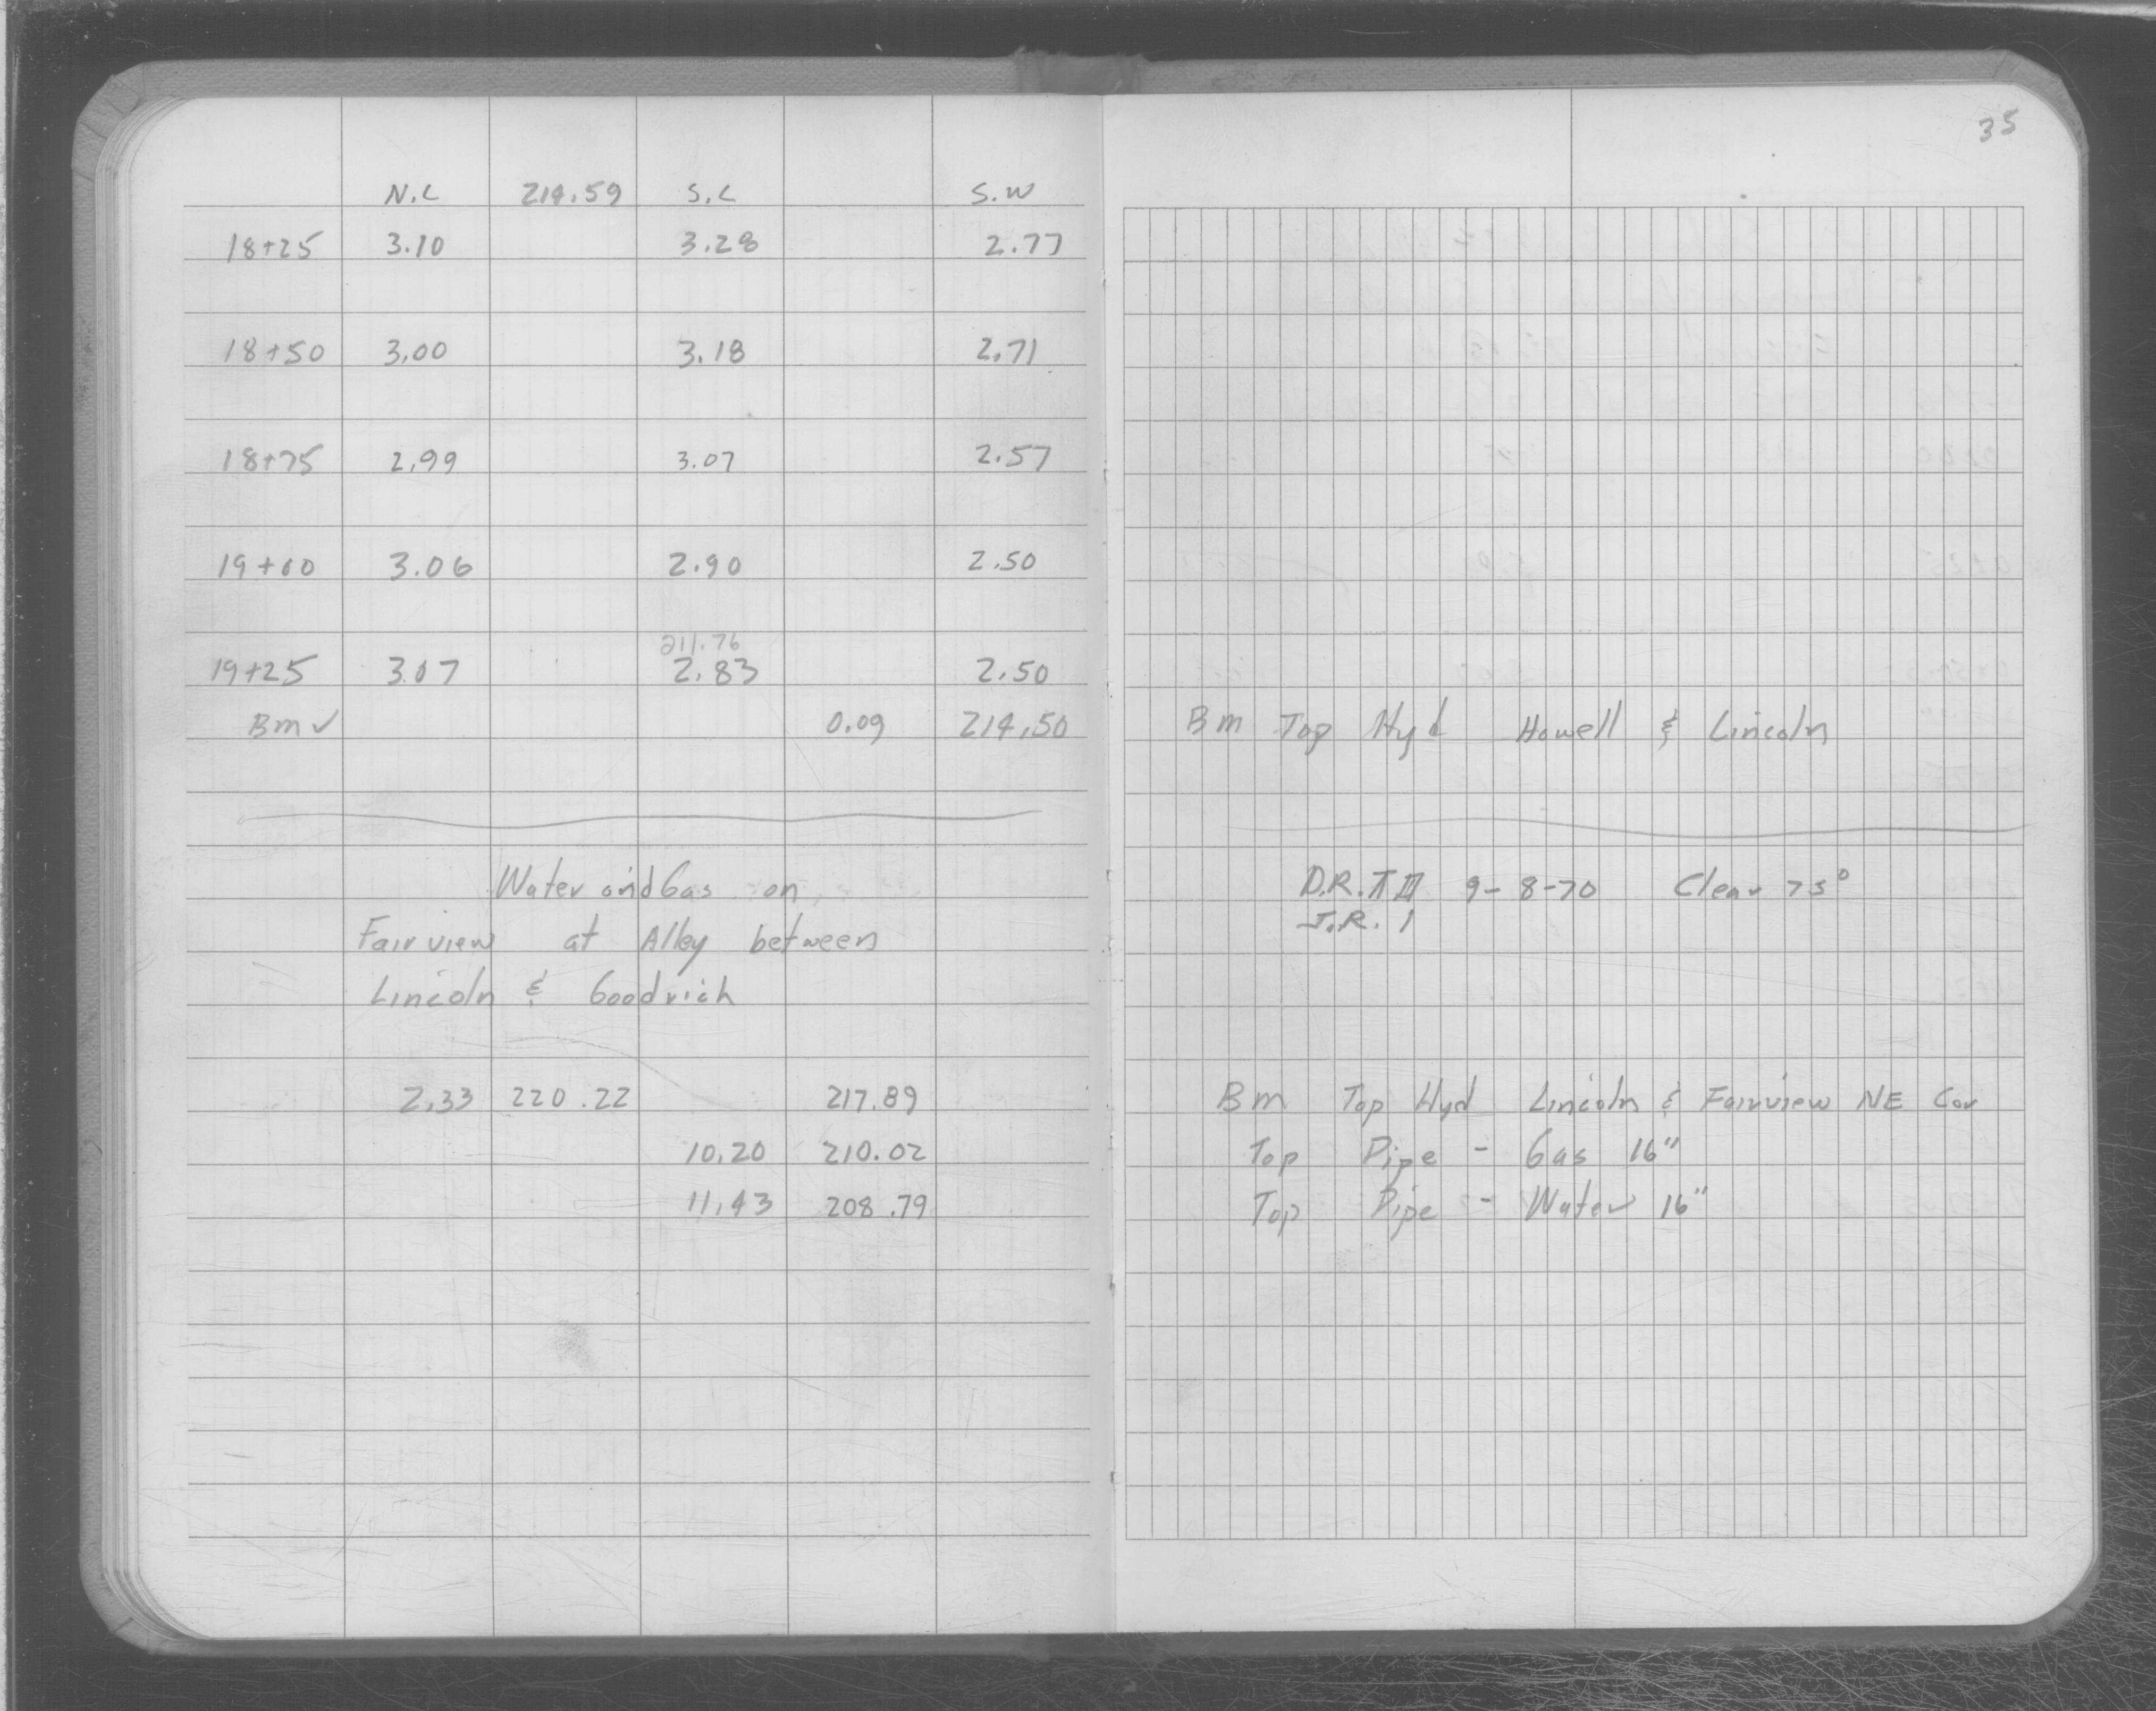 35
N.C 214.59 S.C S.W
18+25 3.10 3.28 2.77
18+50 3.00 3.18 2.71
18+75 2.99 3.07 2.57
19+00 3.06 2.90 2.50
211.76
19+25 3.07 2.83 2.50
Bm ✓ 0.09 214.50 Bm Top Hyd Howell & Lincoln
Water and Gas on
Fairview at Alley between
Lincoln & Goodrich
D.R. 9-8-70 Clear 75°
J.R.
2.33 220.22 217.89 Bm Top Hyd Lincoln & Fairview NE Cor
10.20 210.02 Top Pipe - Gas 16"
11.43 208.79 Top Pipe - Water 16"